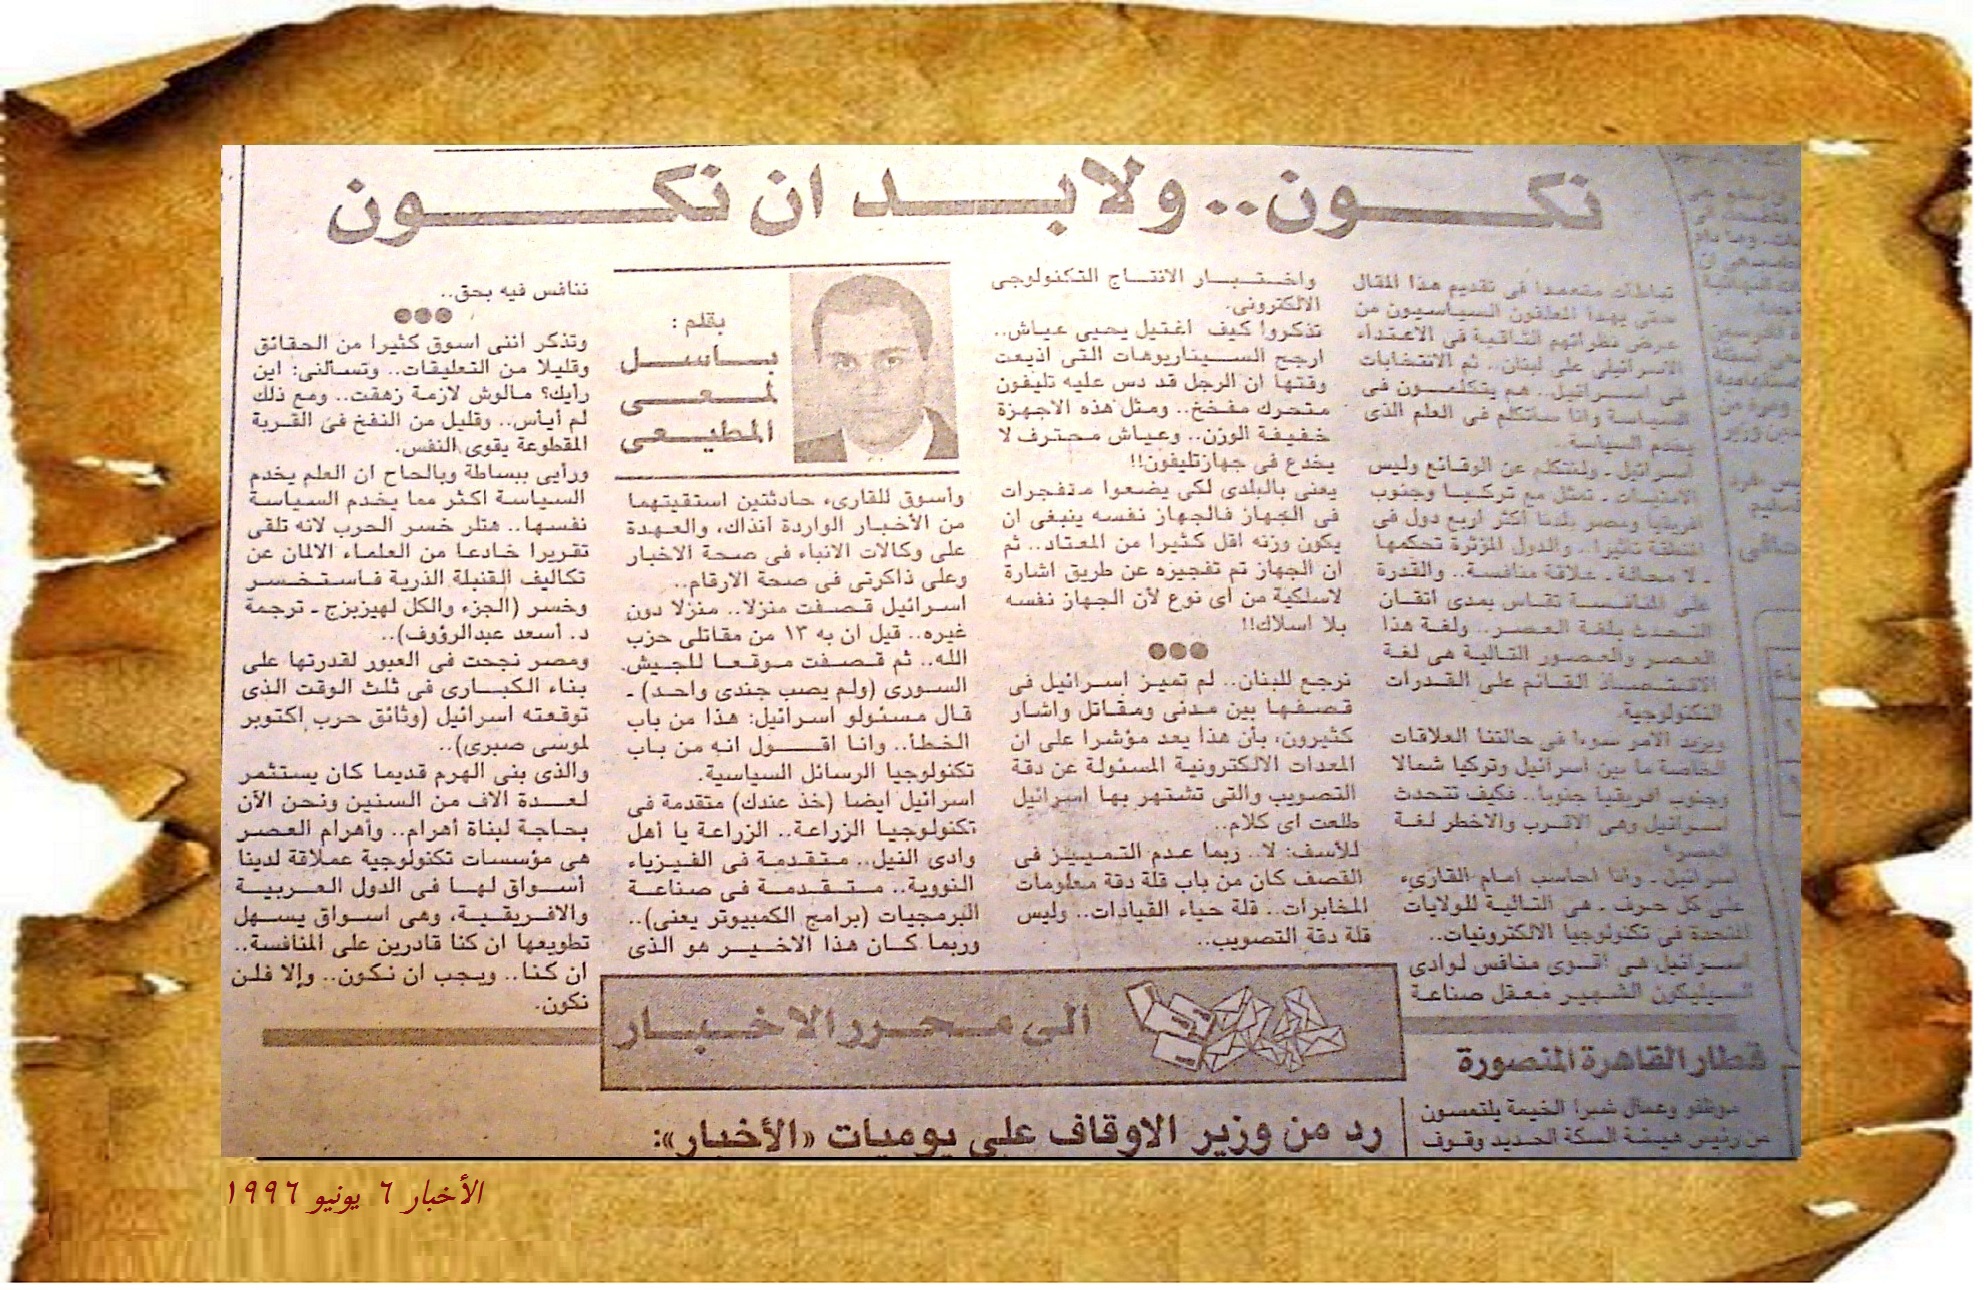 نكون.. ولابد ان نكون
تباطأت متعمدا فى تقديم هذا المقال
حتى يهدأ المعلقون السياسيون من
عرض نظرائهم الثاقبة فى الاعتداء
الاسرائيلى على لبنان.. ثم الانتخابات
فى اسرائيل.. هم يتكلمون فى
السياسة وانا سأتكلم فى العلم الذى
يخدم السياسة..
اسرائيل ـ ولنتكلم عن الوقائع وليس
الامنيات ـ تمثل مع تركيا وجنوب
افريقيا ومصر بلدنا أكثر اربع دول فى
المنطقة تأثيرا.. والدول المؤثرة تحكمها
ـ لا محالة ـ علاقة منافسة.. والقدرة
على المنافسة تقاس بمدى اتقان
التحدث بلغة العصر.. ولغة هذا
العصر والعصور التالية هى لغة
الاقتصاد القائم على القدرات
التكنولوجية.
ويزيد الامر سوءا فى حالتنا العلاقات
الخاصة ما بين اسرائيل وتركيا شمالا
وجنوب افريقيا جنوبا.. فكيف تتحدث
اسرائيل وهى الاقرب والاخطر لغة
العصر؟
اسرائيل ـ وأنا احاسب أمام القارىء
على كل حرف ـ هى التالية للولايات
المتحدة فى تكنولوجيا الالكترونيات..
اسرائيل هى اقوى منافس لوادى
السيليكون الشهير معقل صناعة
واختبار الانتاج التكنولوجى
الالكترونى.
تذكروا كيف اغتيل يحيى عياش..
ارجح السيناريوهات التى اذيعت
وقتها ان الرجل قد دس عليه تليفون
متحرك مفخخ.. ومثل هذه الاجهزة
خفيفة الوزن.. وعياش محترف لا
يخدع فى جهازتليفون!!
يعنى بالبلدى لكى يضعوا متفجرات
فى الجهاز فالجهاز نفسه ينبغى ان
يكون وزنه اقل كثيرا من المعتاد.. ثم
ان الجهاز تم تفجيره عن طريق اشارة
لاسلكية من اى نوع لأن الجهاز نفسه
بلا اسلاك!!
●●●
نرجع للبنان.. لم تميز اسرائيل فى
قصفها بين مدنى ومقاتل واشار
كثيرون، بأن هذا يعد مؤشرا على ان
المعدات الالكترونية المسئولة عن دقة
التصويب والتى تشتهر بها اسرائيل
طلعت اى كلام..
للأسف: لا.. ربما عدم التمييز فى
القصف كان من باب قلة دقة معلومات
المخابرات.. قلة حياء القيادات.. وليس
قلة دقة التصويب..
بقلم :
باسل
لمعى
المطيعى
وأسوق للقارىء حادثتين استقيتهما
من الأخبار الواردة آنذاك، والعهدة
على وكالات الانباء فى صحة الاخبار
وعلى ذاكرتى فى صحة الارقام..
اسرائيل قصفت منزلا.. منزلا دون
غيره.. قيل ان به ١٣ من مقاتلى حزب
الله.. ثم قصفت موقعا للجيش
السورى (ولم يصب جندى واحد) ـ
قال مسئولو اسرائيل: هذا من باب
الخطأ.. وانا اقول انه من باب
تكنولوجيا الرسائل السياسية.
اسرائيل ايضا (خذ عندك) متقدمة فى
تكنولوجيا الزراعة.. الزراعة يا أهل
وادى النيل.. متقدمة فى الفيزياء
النووية.. متقدمة فى صناعة
البرمجيات (برامج الكمبيوتر يعنى)..
وربما كان هذا الاخير هو الذى
ننافس فيه بحق..
●●●
وتذكر اننى اسوق كثيرا من الحقائق
وقليلا من التعليقات.. وتسألنى: اين
رأيك؟ مالوش لازمة زهقت.. ومع ذلك
لم أيأس.. وقليل من النفخ فى القربة
المقطوعة يقوى النفس.
ورأيى ببساطة وبالحاح ان العلم يخدم
السياسة اكثر مما يخدم السياسة
نفسها.. هتلر خسر الحرب لانه تلقى
تقريرا خادعا من العلماء الالمان عن
تكاليف القنبلة الذرية فاستخسر
وخسر (الجزء والكل لهيزبزج ـ ترجمة
د. أسعد عبدالرؤوف)..
ومصر نجحت فى العبور لقدرتها على
بناء الكبارى فى ثلث الوقت الذى
توقعته اسرائيل (وثائق حرب اكتوبر
لموسى صبرى)..
والذى بنى الهرم قديما كان يستثمر
لعدة الاف من السنين ونحن الآن
بحاجة لبناة أهرام.. وأهرام العصر
هى مؤسسات تكنولوجية عملاقة لدينا
أسواق لها فى الدول العربية
والافريقية، وهى اسواق يسهل
تطويعها ان كنا قادرين على المنافسة..
ان كنا.. ويجب ان نكون.. وإلا فلن
نكون.
الى محرر الاخبار
قطار القاهرة المنصورة
موظفو وعمال شبرا الخيمة يلتمسون
من رئيس هيئة السكة الحديد وقوف
رد من وزير الاوقاف على يوميات «الأخبار»:
الأخبار ٦ يونيو ١٩٩٦